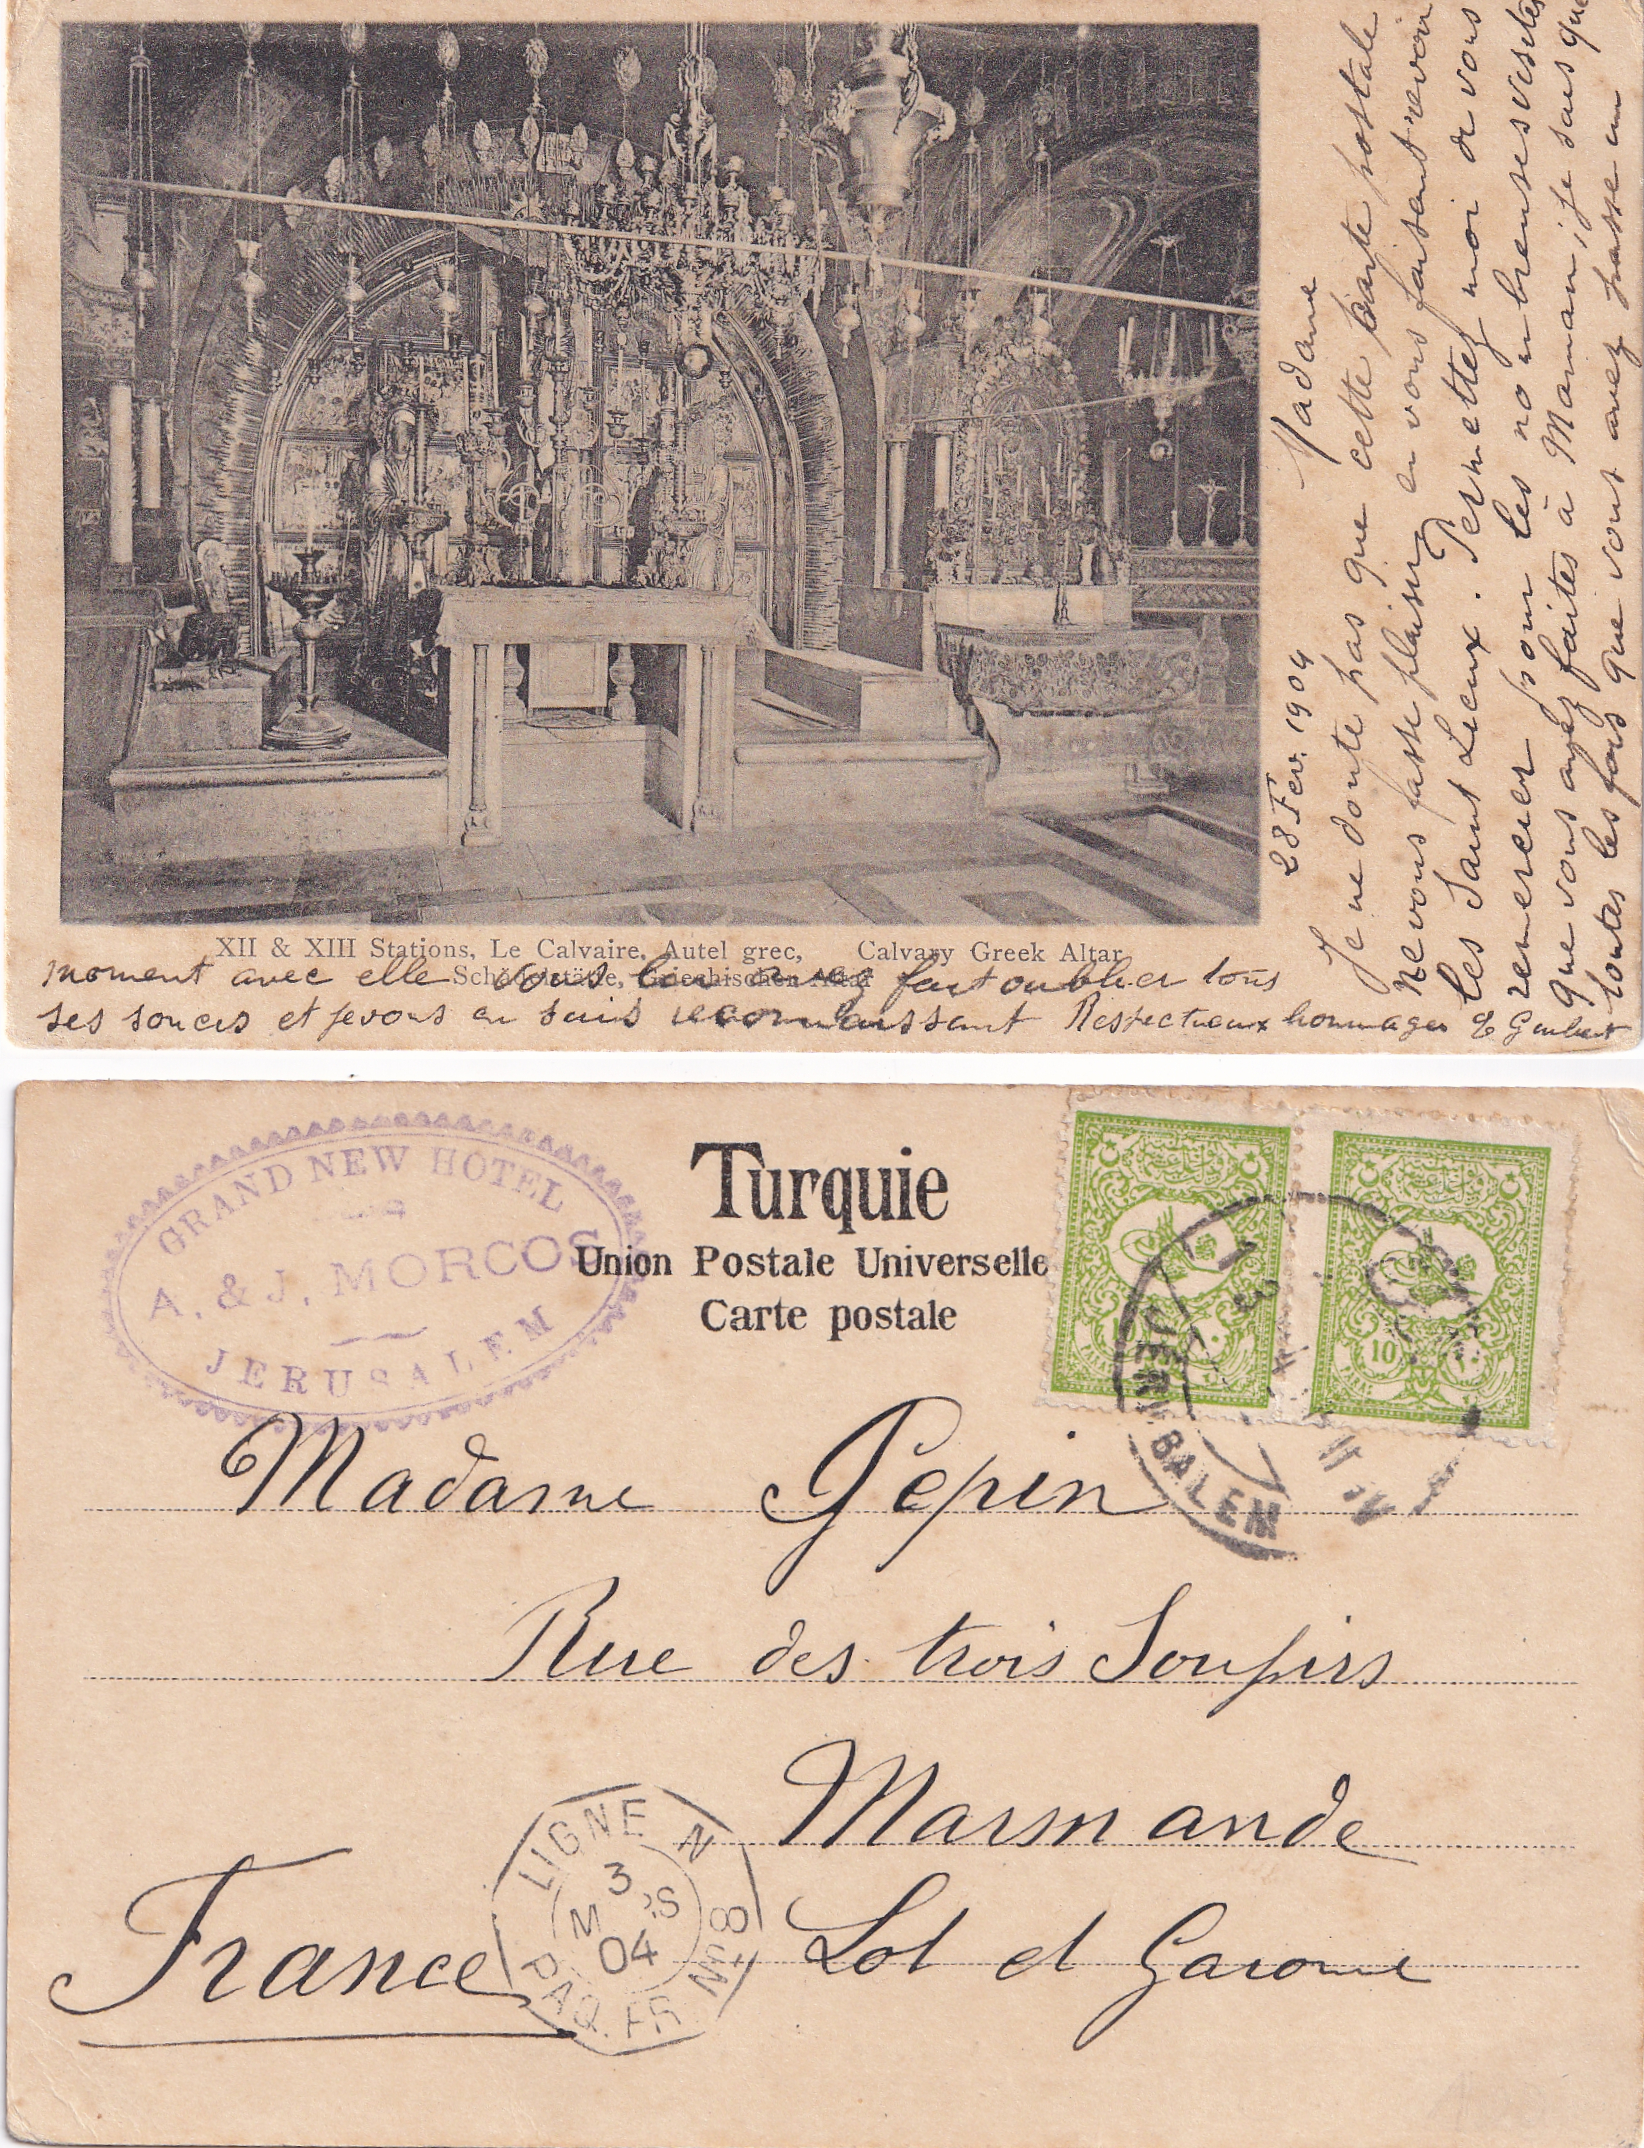 28 Fev. 1904
Madame
Je ne doute pas que cette carte postale
ne vous fasse plaisir en vous faisant revoir
les Saint Lieux. Permettez moi de vous
remercier pour les nombreuses visites
que vous avez faites à Maman, je sais que
toutes les fois que vous avez passé un
XII & XIII Stations, Le Calvaire, Autel grec, Calvary Greek Altar
Schädelstätte, Griechischen Altar
moment avec elle vous lui avez fait oublier tous
ses soucis et je vous en suis reconnaissant Respectueux hommages
GRAND NEW HOTEL
A. & J. MORCOS
JERUSALEM
Turquie
Union Postale Universelle
Carte postale
10
JERUSALEM
Madame Pepin
Rue des trois Soupirs
Marmande
Lot et Garonne
France
LIGNE N
3
MARS
04
PAQ. FR. Nº 8